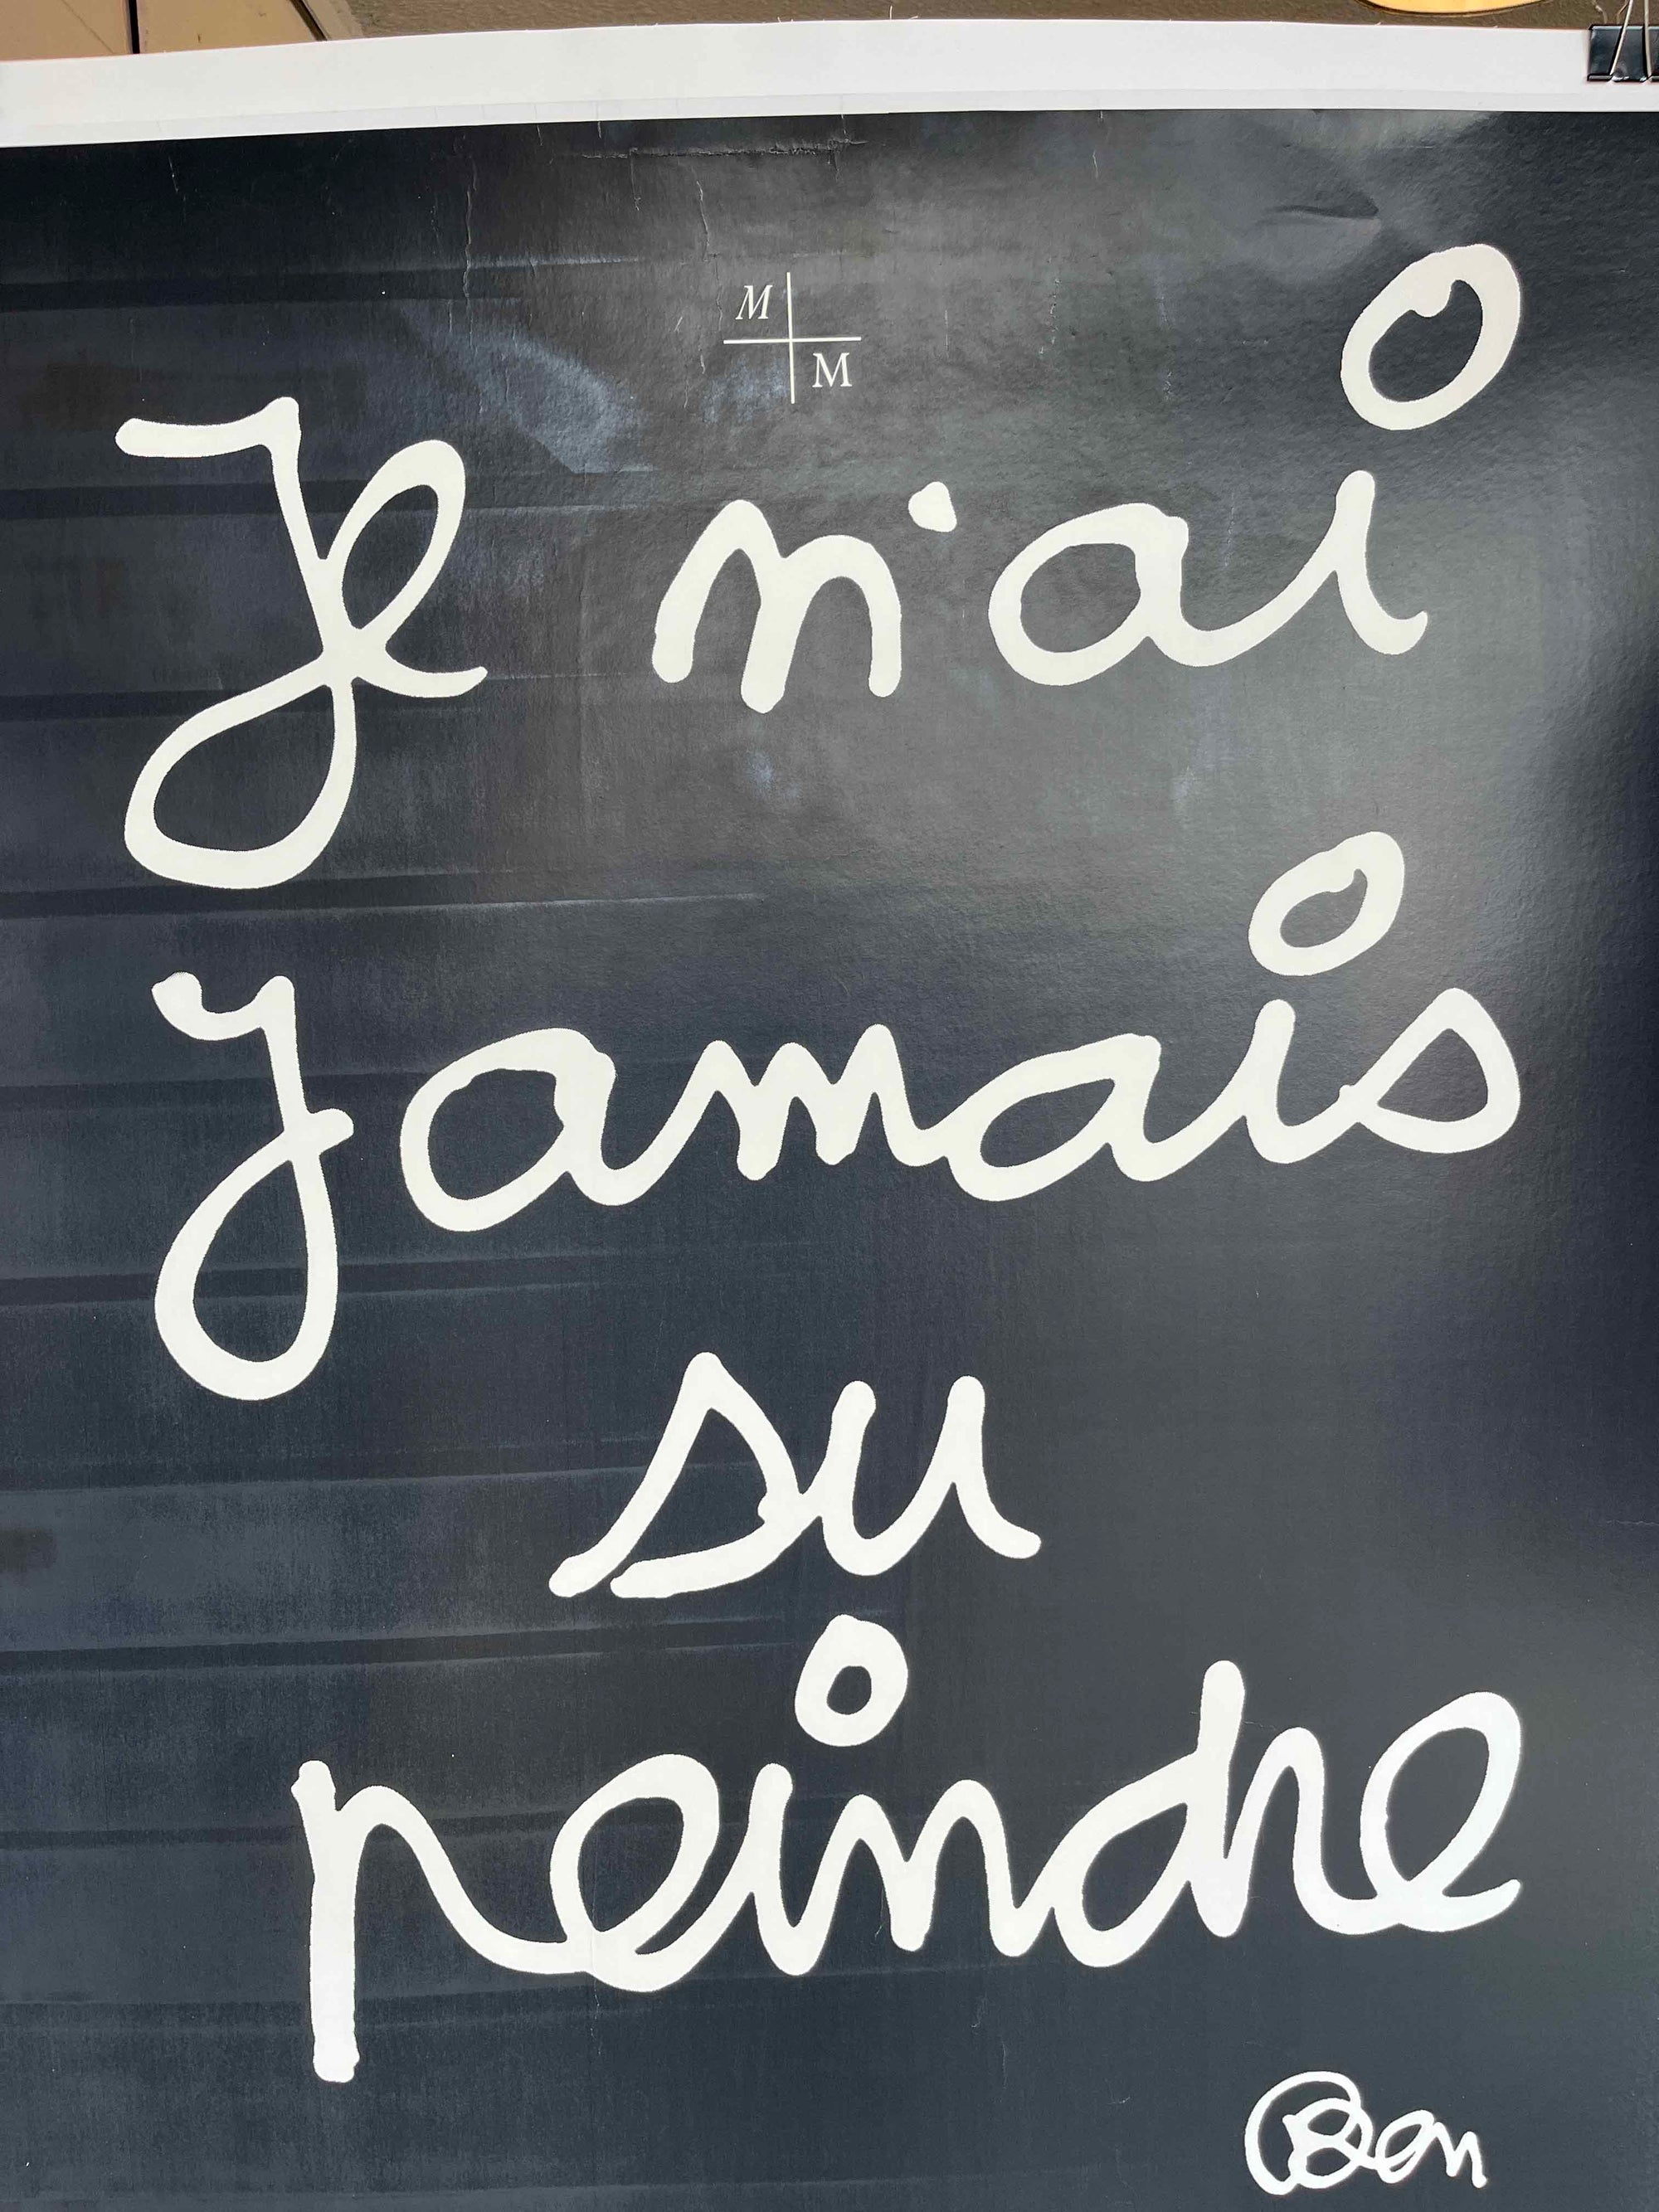 M
M
Je n'ai
Jamais
su
peindre
Ben